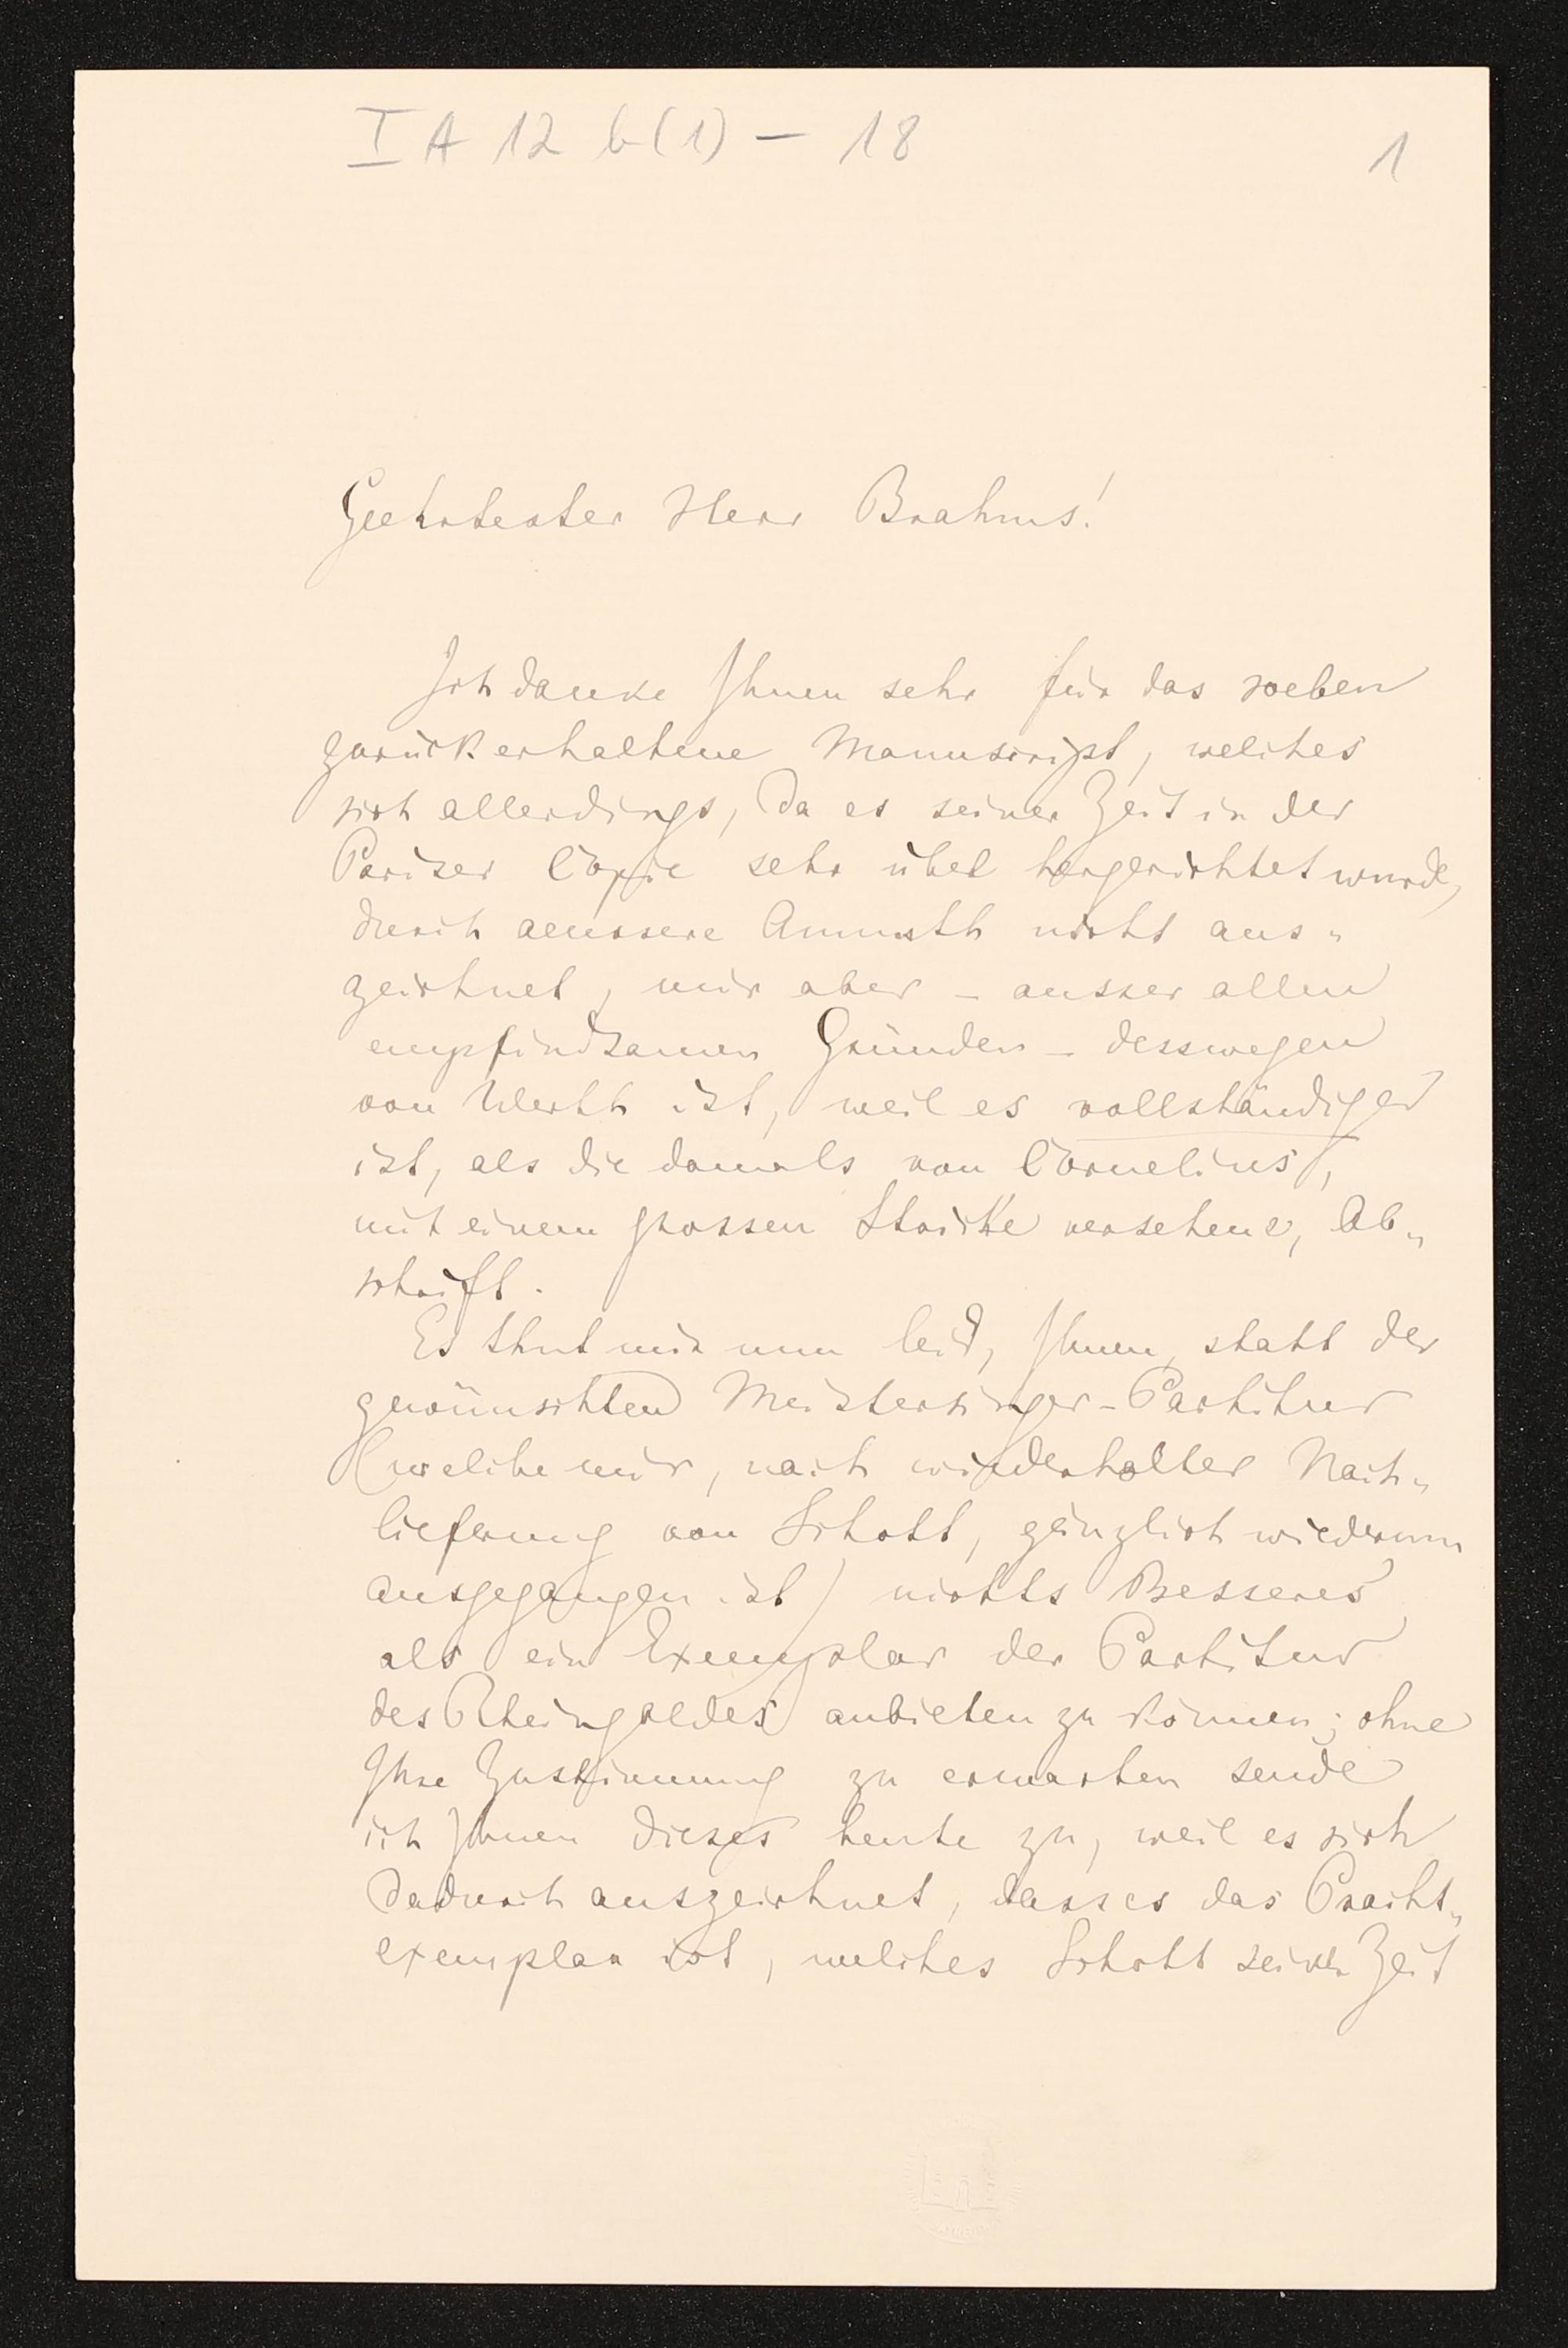 I A 12 b(1) - 18
1
Geehrtester Herr Brahms!
Ich danke Ihnen sehr für das soeben
zurückerhaltene Manuscript, welches
sich allerdings, da es seiner Zeit in der
Pariser Copie sehr übel hergerichtet wurde,
durch aeussere Anmuth nicht aus„
zeichnet, mir aber – ausser allen
empfindsamen Gründen – desswegen
von Werth ist, weil es vollständiger
ist, als die damals von Cornelius,
mit einem grossen Striche versehene, Ab„
schrift.
Es thut mir nun leid, Ihnen, statt der
gewünschten Meistersinger-Partitur
(welche mir, nach wiederholter Nach„
lieferung von Schott, gänzlich wiederum
ausgegangen ist) nichts Besseres
als ein Exemplar der Partitur
des Rheingoldes anbieten zu können; ohne
Ihre Zustimmung zu erwarten sende
ich Ihnen dieses heute zu, weil es sich
dadurch auszeichnet, dass es das Pracht„
exemplar ist, welches Schott seiner Zeit